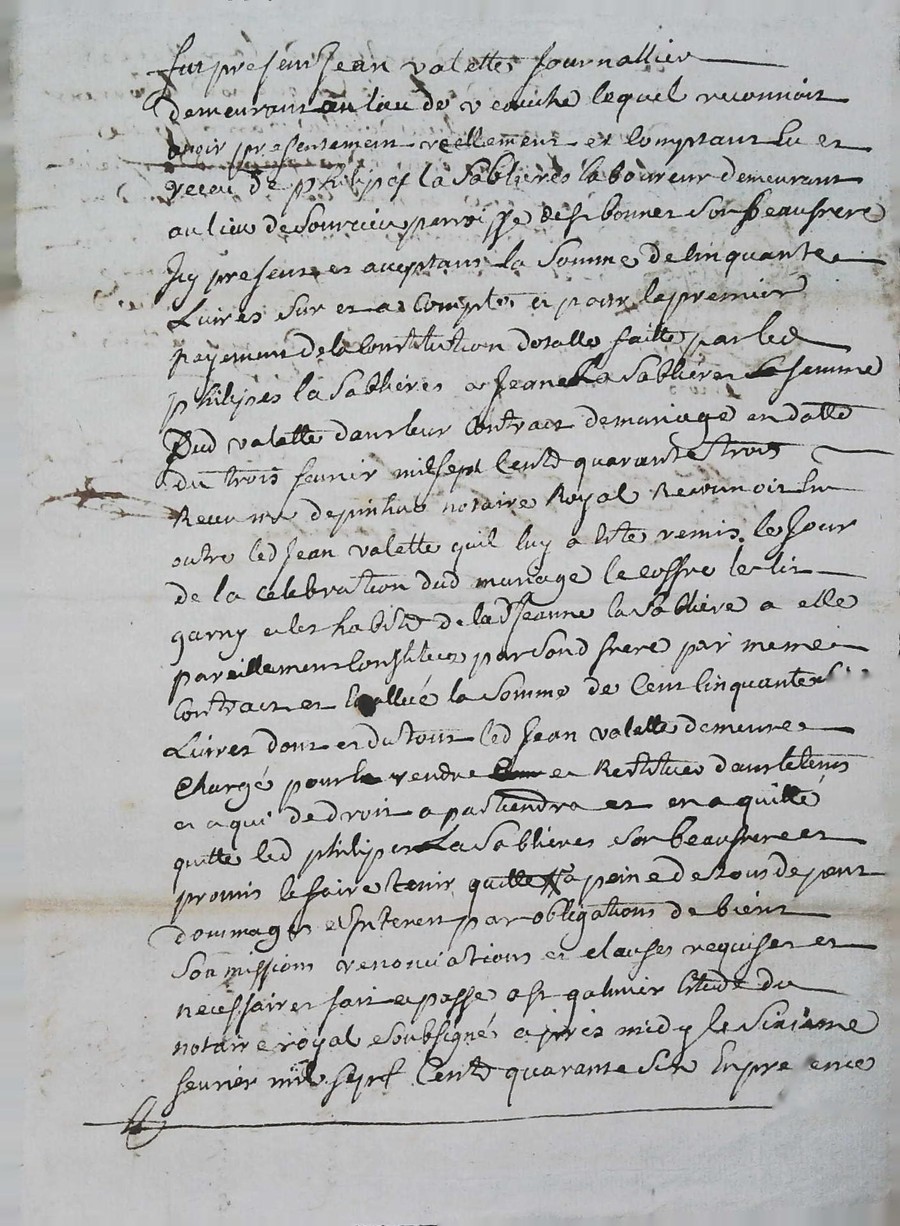 fut present Jean valette Journallier
demeurant au lieu de veauche lequel reconnoit
avoir presentement reellement et comptant hu et
receu de philipes la Sablieres laboureur demeurant
au lieu de Sourcieu perroisse de St bonnet Son beaufrere
Icy present et acceptant la Somme de Cinquante
Livres Sur et a Compte et pour le premier
payement de la Constitution dotalle faitte par led
philipes la Sablieres a Jeane la Sablieres Sa femme
Dud valette dans leur Contract de mariage en datte
du trois fevrier mil sept Centz quarante trois
Receu me depinhac notaire Royal Reconnoit hu
outre led Jean valette quil luy a este remis le Jour
de la celebration dud mariage le coffre le lit
garny et les habitz de lad Jeanne la Sabliere a elle
pareillement Constitues par Sond frere par meme
Contract et Evallué la Somme de Cent Cinquante
Livres dont et du tout led Jean valette demeure
Chargé pour le rendre et Restituer dans le tems
et a qui de droit apartiendra et en a quitté
quitte led philipes La Sablieres Son beaufrere et
promis le faire tenir quitte a peine de tous depent
dommages et Interest par obligations de biens
Soumissions renonciations et clauses requises et
necessaires fait et passe a St galmier Etude du
notaire royal Soubsigné apres midy le Sixieme
fevrier mil sept Centz quarante Six En presence